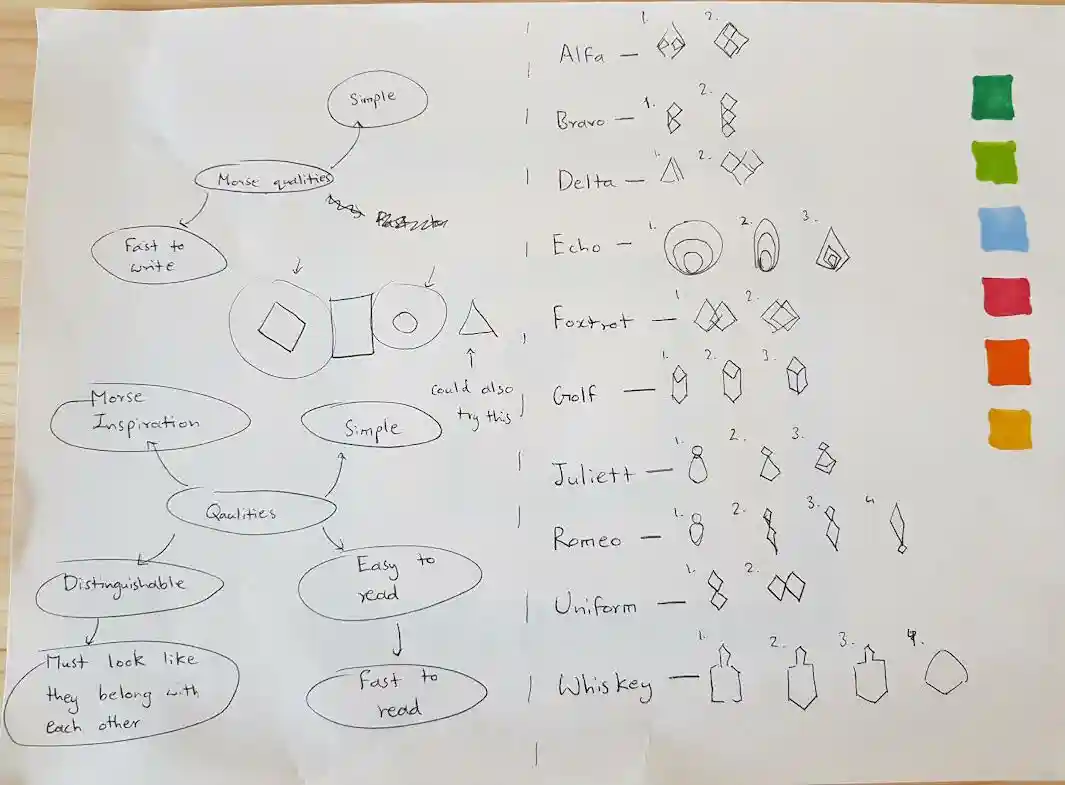 Simple
Morse qualities
Fast to
write
could also
try this
Morse
Inspiration
Simple
Qaulities
Distinguishable
Easy to
read
Must look like
they belong with
each other
Fast to
read
Alfa — 1. 2.
Bravo — 1. 2.
Delta — 1. 2.
Echo — 1. 2. 3.
Foxtrot — 1. 2.
Golf — 1. 2. 3.
Juliett — 1. 2. 3.
Romeo — 1. 2. 3. 4.
Uniform — 1. 2.
Whiskey — 1. 2. 3. 4.